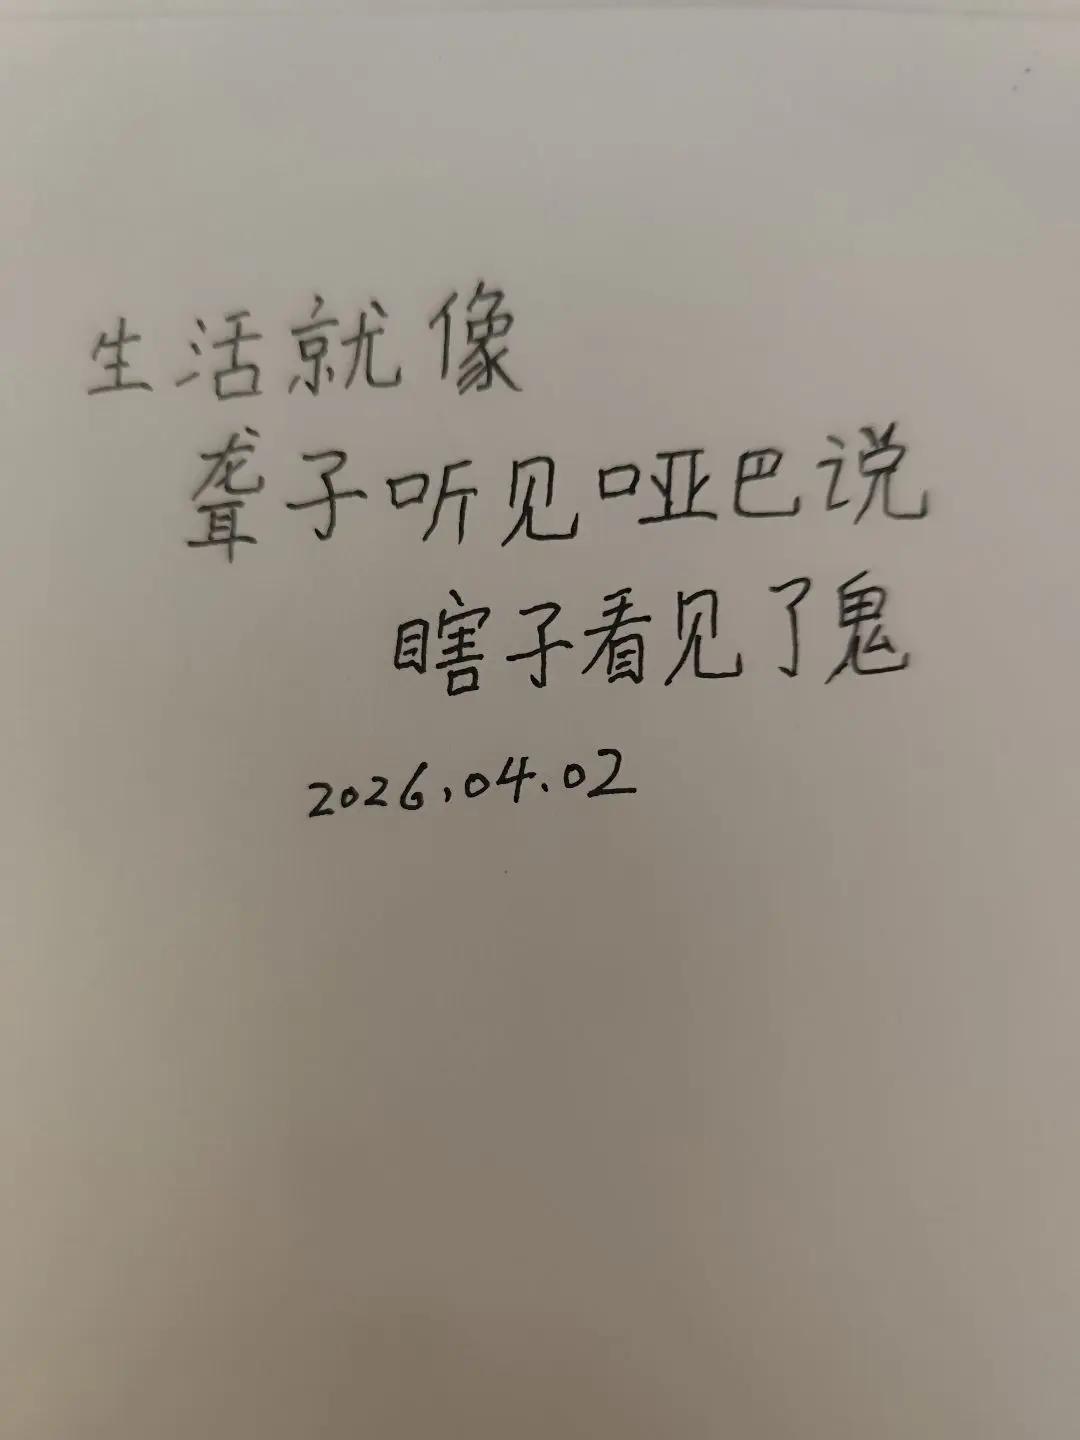 生活就像
聋子听见哑巴说
瞎子看见了鬼
2026.04.02